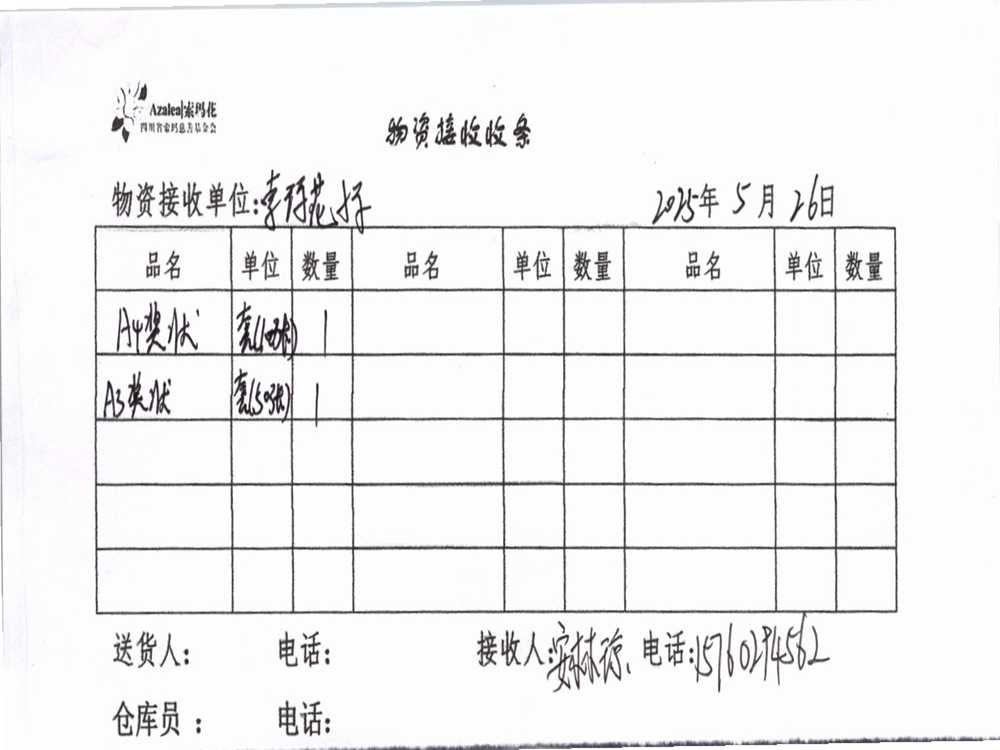 Azalea|索玛花
四川省索玛慈善基金会
物资接收收条
物资接收单位:
2025年 5月 26日
品名 单位 数量 品名 单位 数量 品名 单位 数量
A4奖状 套(100张) 1
A3奖状 套(50张) 1
送货人: 电话: 接收人:安林琼 电话:15760294562
仓库员 : 电话: